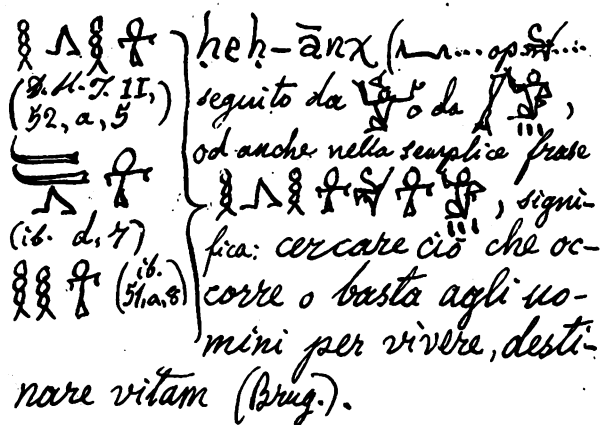 𓎛𓂻𓎛𓋹
(D. H. T. II,
52, a, 5)
𓂻𓋹
(ib. d, 7)
𓎛𓎛𓋹 (ib.
51, a, 8)
ḥeḥ-ānx (
seguito da o da ,
od anche nella semplice frase
𓎛𓂻𓎛𓋹𓋹, signi-
fica: cercare ciò che oc-
corre o basta agli uo-
mini per vivere, desti-
nare vitam (Brug.).